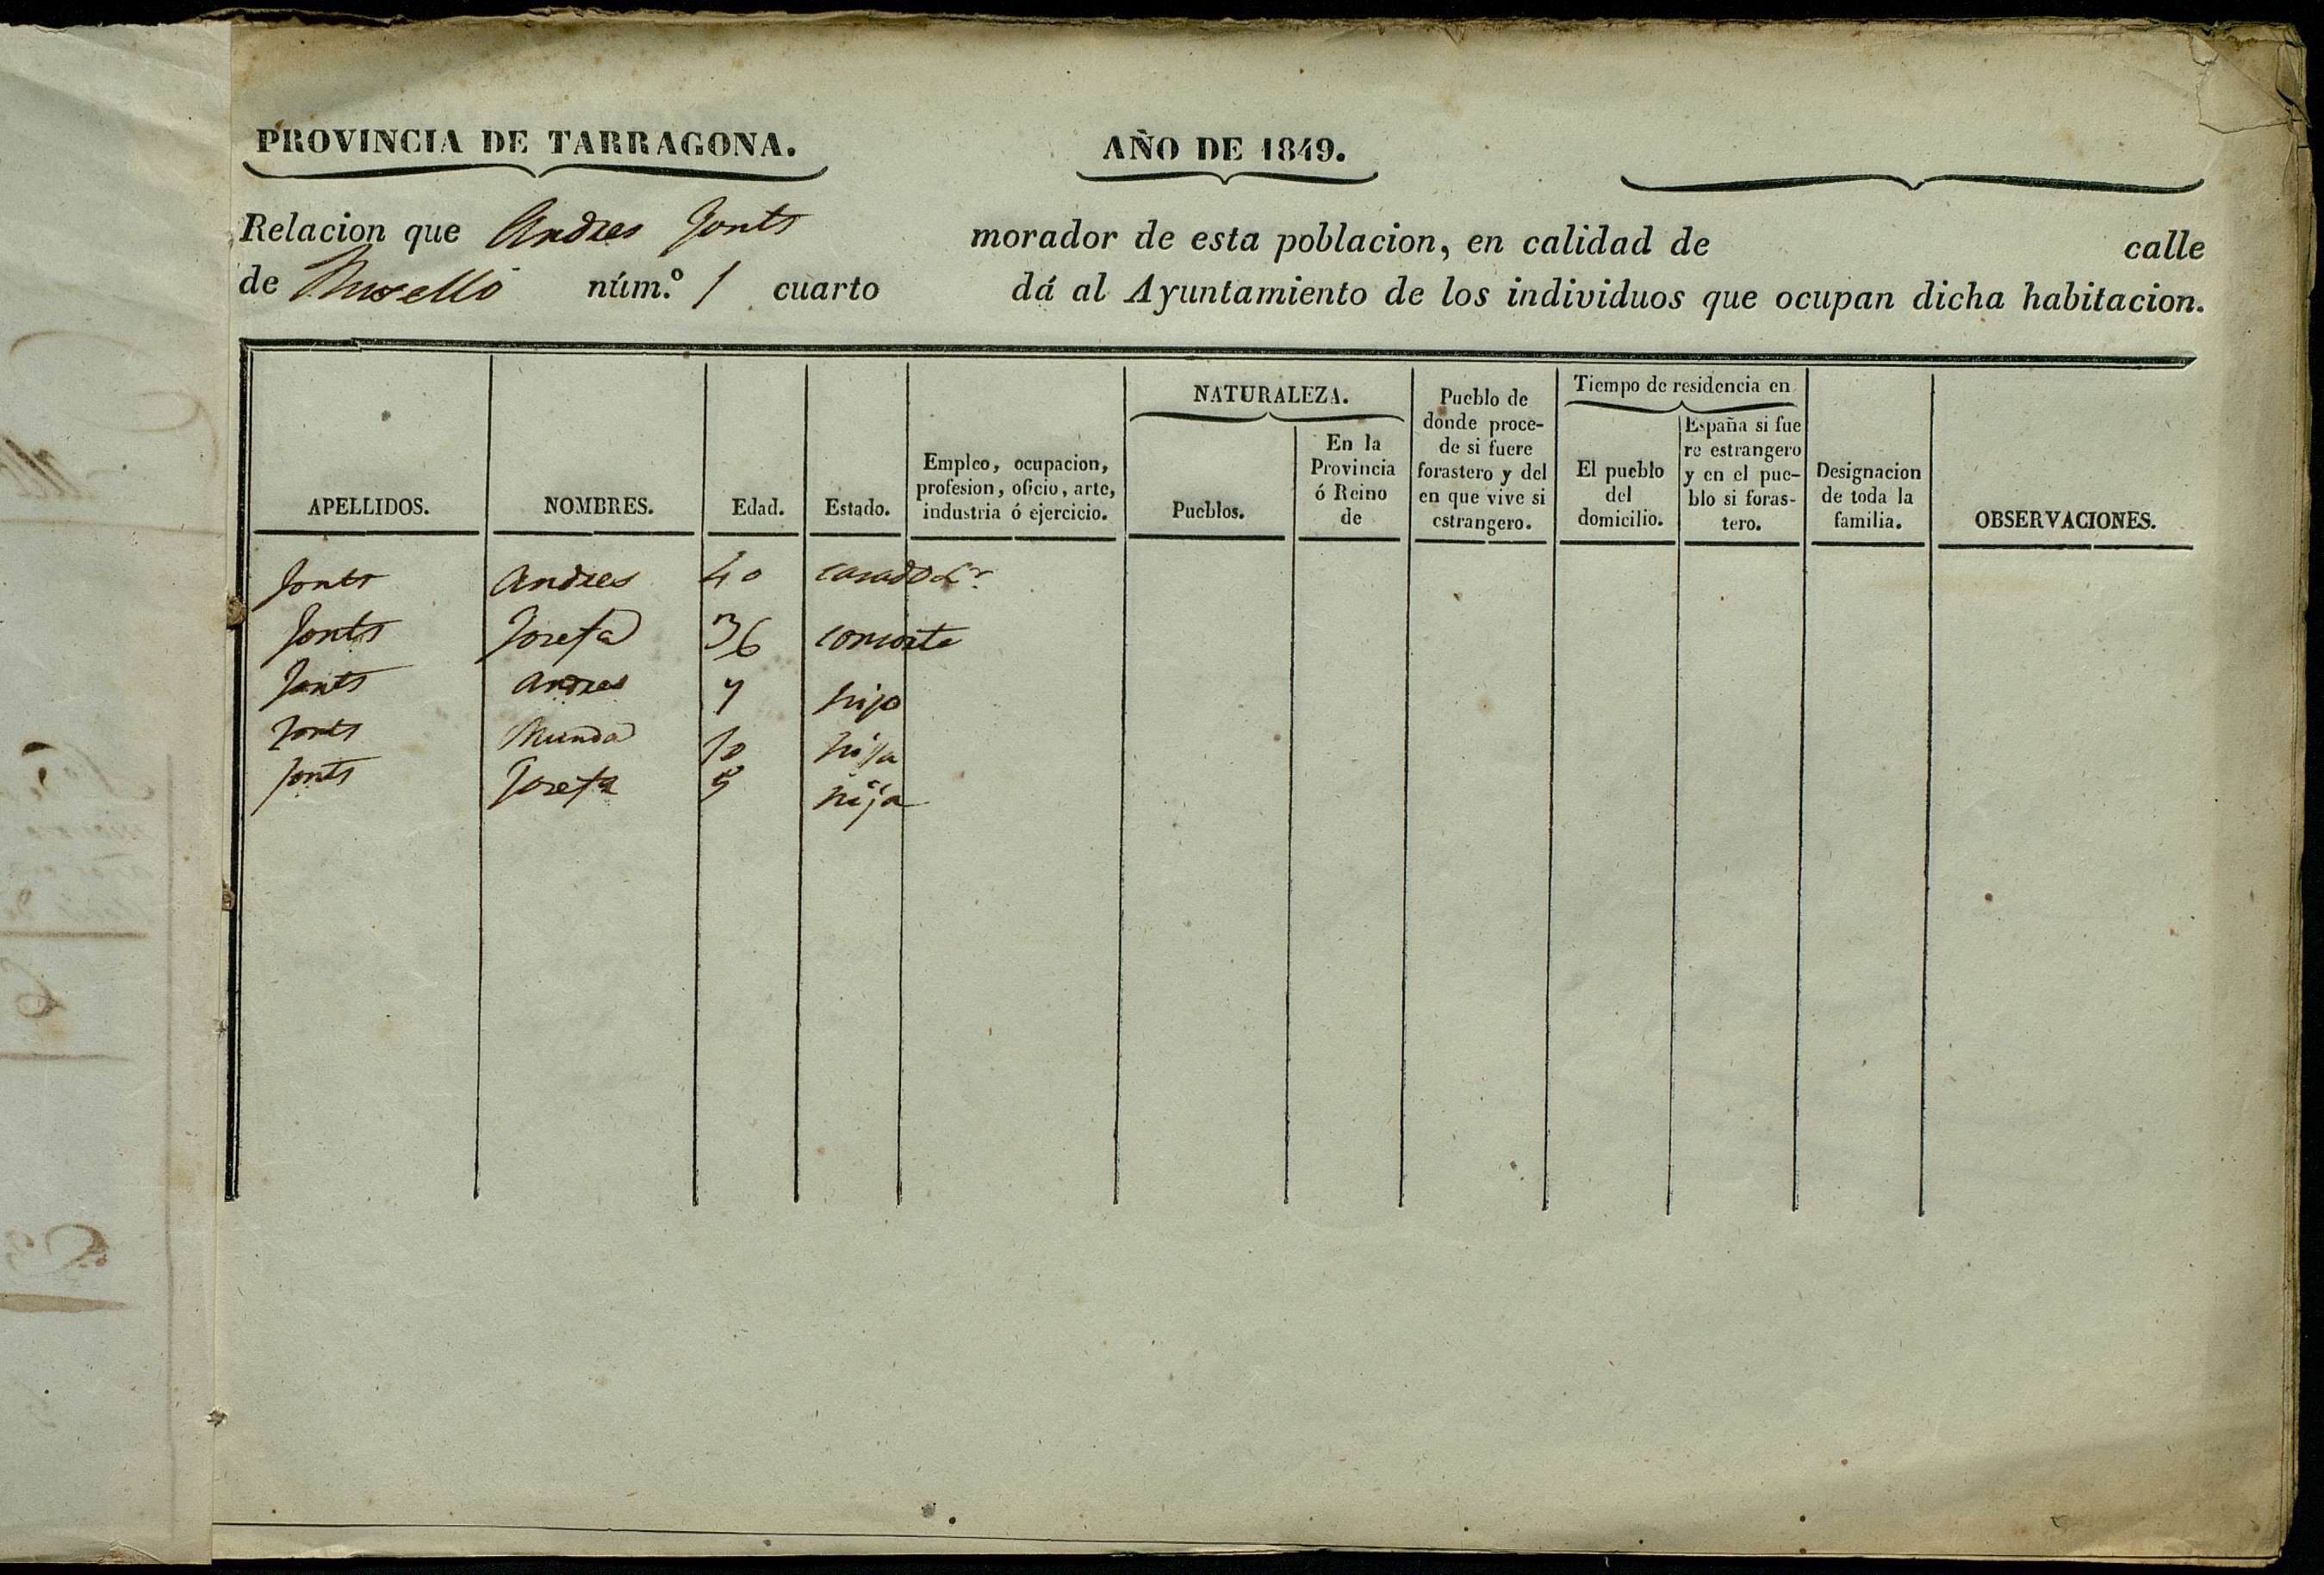 PROVINCIA DE TARRAGONA.
AÑO DE 1849.
Relacion que Andres Fonts morador de esta poblacion, en calidad de calle
de núm.º 1 cuarto dá al Ayuntamiento de los individuos que ocupan dicha habitacion.
APELLIDOS.
NOMBRES.
Edad.
Estado.
Empleo, ocupacion,
profesion, oficio, arte,
industria ó ejercicio.
NATURALEZA.
Pueblos.
En la
Provincia
ó Reino
de
Pueblo de
donde proce-
de si fuere
forastero y del
en que vive si
estrangero.
Tiempo de residencia en
El pueblo
del
domicilio.
España si fue
re estrangero
y en el pue-
blo si foras-
tero.
Designacion
de toda la
familia.
OBSERVACIONES.
Fonts Andres 40 casado Lr.
Fonts Josefa 36 consorte
Fonts Andres 7 hijo
Fonts Munda 10 hija
Fonts Josefa hija